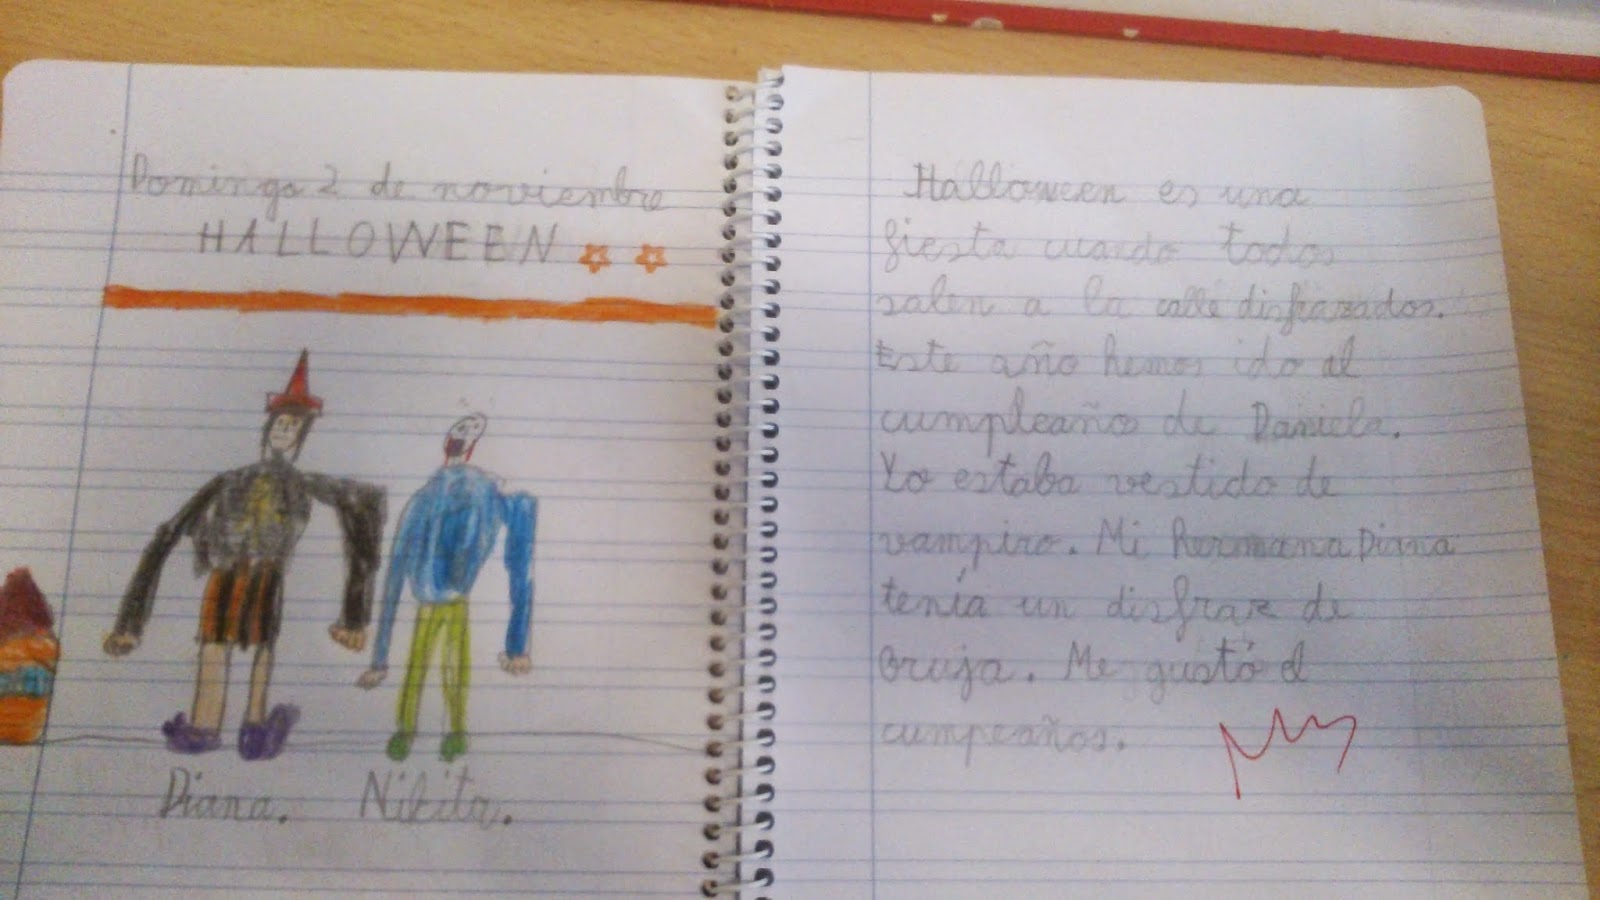 Domingo 2 de noviembre
HALLOWEEN
Diana. Nikita.
Halloween es una
fiesta cuando todos
salen a la calle disfrazados.
Este año hemos ido al
cumpleaños de Daniela.
Yo estaba vestido de
vampiro. Mi hermana Diana
tenía un disfraz de
bruja. Me gustó el
cumpeaños.